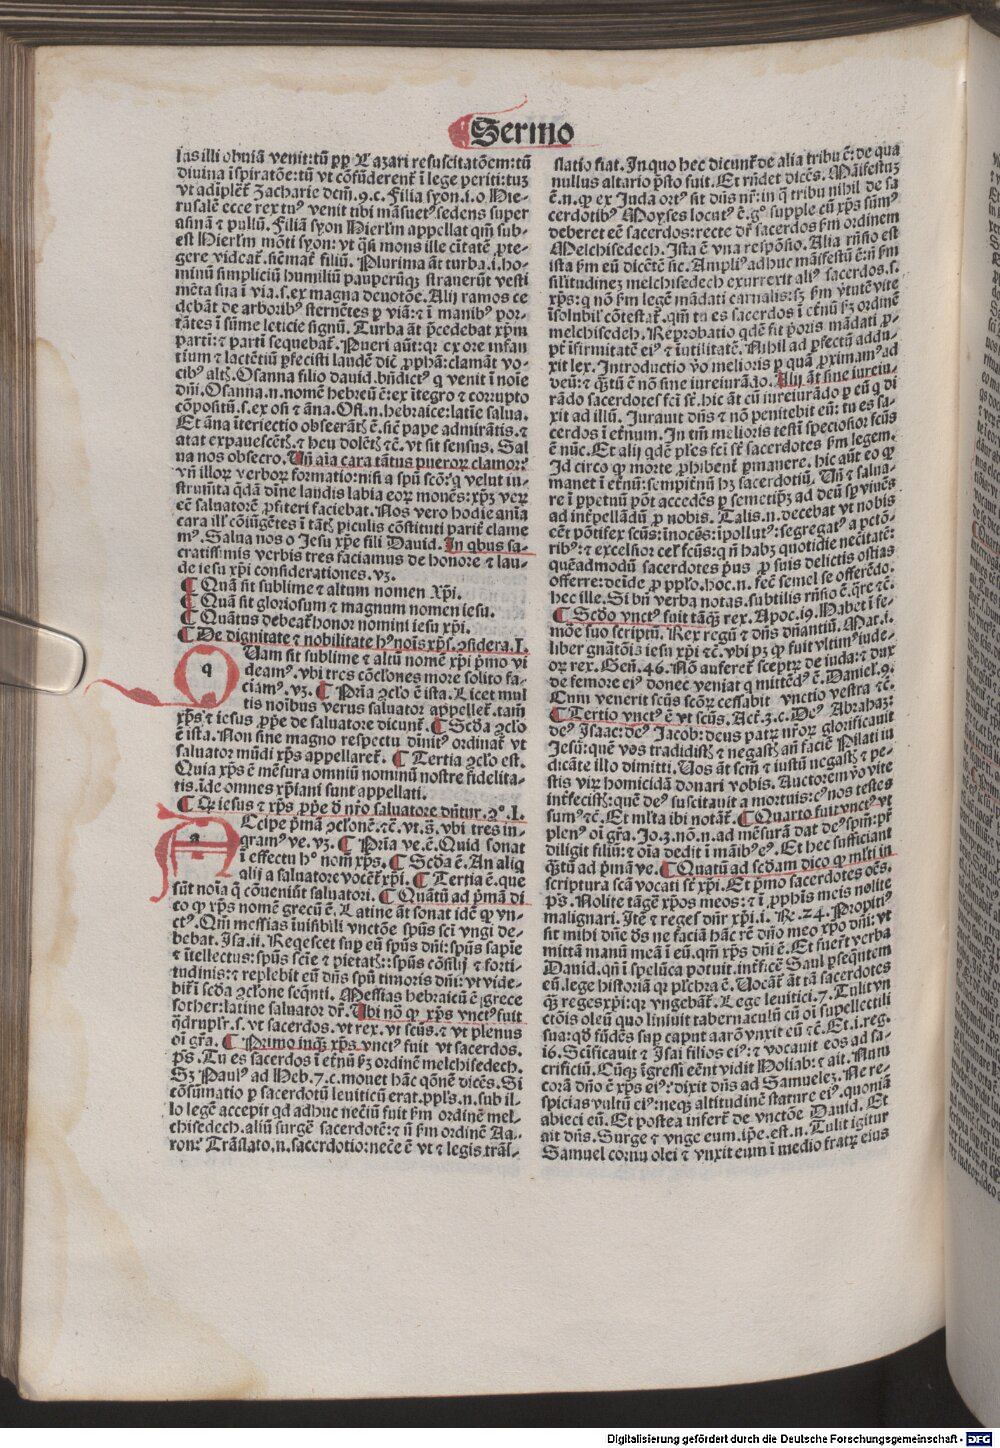 Sermo
las illi obuiā venit:tū ꝓp Lazari resuscitatōem:tū
diuina īspiratōe:tū vt cōfūderent̄ ī lege periti:tuꝫ
vt adīplet̄ Zacharie dcm̄.9.c. Filia syon.i.o Hie-
rusalē ecce rex tuꝰ venit tibi māsuetꝰ sedens super
asinā ⁊ pullū. Filiā syon Hierl̄m appellat qm̄ sub-
est Hierl̄m mōti syon: vt q̄si mons ille cītatē ꝓte-
gere videat̄.sic̄ mat̄ filiū. Plurima āt turba.i.ho-
minū simpliciū humiliū pauperūqꝫ strauerūt vesti
mēta sua ī via.s.ex magna deuotōe. Alij ramos ce
debāt de arboribꝰ sternētes ꝑ viā:⁊ ī manibꝰ por-
tātes ī sūme leticie signū. Turba āt p̄cedebat xp̄m
parti:⁊ parti sequebat̄. Pueri aūt:qꝛ ex ore infan
tium ⁊ lactētiū ꝑfecisti laudē dic̄ ꝓphā:clamāt vo-
cibꝰ altꝭ. Osanna filio dauid.bn̄dictꝰ q venit ī noīe
dn̄i. Osanna.n.nomē hebreū ē:ex ītegro ⁊ corrupto
cōpositū.s.ex osi ⁊ āna. Osi.n.hebraice:latīe salua.
Et āna īteriectio obsecrātꝭ ē.sic̄ pape admirātis.⁊
atat expauescētꝭ.⁊ heu dolētꝭ ⁊c̄. vt sit sensus. Sal
ua nos obsecro. Uñ aīa cara tātus pueroꝝ clamor:
vñ illoꝝ verboꝝ formatio:nisi a spū scō:q velut in-
strumēta q̄dā dīne laudis labia eoꝝ mouēs:xp̄ꝫ veꝝ
eē saluatorē ꝓfiteri faciebat. Nos vero hodie anīa
cara ill̄ cōiūgētes ī tātꝭ piculis cōstituti parit̄ clame
mꝰ. Salua nos o Jesu xp̄e fili Dauid. In qbus sa-
cratissimis verbis tres faciamus de honore ⁊ lau-
de iesu xp̄i considerationes.vꝫ.
¶ Quā sit sublime ⁊ altum nomen Xp̄i.
¶ Quā sit gloriosum ⁊ magnum nomen iesu.
¶ Quātus debeat̄ honor nomini iesu xp̄i.
¶ De dignitate ⁊ nobilitate hꝰ noīs xp̄s. ꝯsidera.I.
QUam sit sublime ⁊ altū nomē xp̄i p̄mo vi
deamꝰ.vbi tres cōclones more solito fa-
ciamꝰ.vꝫ. ¶ Prīa ꝯclo ē ista. Licet mul
tis noībus verus saluator appellet̄.tam̄
xp̄s ⁊ iesus ꝓp̄e de saluatore dicunt̄. ¶ Scd̄a ꝯclo
ē ista. Non sine magno respectu dīnitꝰ ordinat̄ vt
saluator mūdi xp̄s appellaret̄. ¶ Tertia ꝯclo est.
Quia xp̄s ē mēsura omniū nominū nostre fidelita-
tis.ide omnes xp̄iani sunt appellati.
¶ Qꝛ iesus ⁊ xp̄s ꝓp̄e d̄ nr̄o saluatore dn̄tur.ꝯ°.I.
AEcipe p̄mā ꝯclonē.⁊c̄. vt.s̄. vbi tres in-
gramꝰ ve.vꝫ. ¶ Prīa ve.ē. Quid sonat
ī effectu h° nom̄ xp̄s. ¶ Scd̄a ē. An aliq
alij a saluatore vocēt̄ xp̄i. ¶ Tertia ē.que
sūt noīa q̄ cōueniūt saluatori. ¶ Quātū ad p̄mā di
co ꝙ xp̄s nomē grecū ē. Latine āt sonat idē ꝙ vn-
ctꝰ. Qm̄ messias īuisibili vnctōe spūs sc̄i vngi de-
bebat. Isa.ii. Reqescet suꝑ eū spūs dn̄i:spūs sapīe
⁊ ītellectus:spūs scīe ⁊ pietatꝭ::spūs cōsilij ⁊ forti-
tudinis:⁊ replebit eū dn̄s spū timoris dn̄i:vt vide-
bit̄ ī scd̄a ꝯclone seqn̄ti. Messias hebraicū ē grece
sother:latine saluator dr̄. Ubi nō ꝙ xp̄s vnctꝰ fuit
q̄druplr̄.s. vt sacerdos. vt rex. vt scūs.⁊ vt plenus
oi gr̄a. ¶ Primo inqꝫ xp̄s vnctꝰ fuit vt sacerdos.
p̄s. Tu es sacerdos ī et̄nū ẜꝫ ordinē melchisedech.
Sꝫ Paulꝰ ad Heb.7.c.mouet hāc qōnē dicēs. Si
cōsūmatio ꝑ sacerdotū leuiticū erat.pp̄l̄s.n.sub il-
lo legē accepit qd adhuc necīū fuit ẜm ordinē mel-
chisedech.aliū surgē sacerdotē:⁊ ū ẜm ordinē Aa-
ron: Trāslato.n.sacerdotio:necē ē vt ⁊ legis trāl-
slatio fiat. In quo hec dicunt̄ de alia tribu ē:de qua
nullus altario p̄sto fuit. Et rn̄det dicēs. Māifestuꝫ
ē.n.ꝙ ex Juda ortꝰ sit dn̄s nr̄:in q̄ tribu nihil de sa
cerdotibꝰ Moyses locutꝰ ē.g° supple eū xp̄s sūmꝰ
deberet eē sacerdos:recte dr̄ sacerdos ẜm ordinem
Melchisedech. Ista ē vna respōsio. Alia rn̄sio est
ista ẜm eū dicētē sic. Ampliꝰ adhuc māifestū ē:si ẜm
silitudinez melchisedech exurrexit aliꝰ sacerdos.s.
xp̄s:q nō ẜm legē mādati carnalis:sꝫ ẜm v̄tutē vite
īsolubil̄ cōtestat̄.qm̄ tu es sacerdos ī et̄nū ẜꝫ ordinē
melchisedeh. Reprobatio qdē fit p̄oris mādati ꝓ-
pt̄ īfirmitatē eiꝰ ⁊ īutilitatē. Nihil ad ꝑfectū addu-
xit lex. Introductio v̄o melioris ꝑ quā ꝓximamꝰ ad
deū:⁊ q̄ꝫtū ē nō sine iureiurādo. Alij āt sine iureiu-
rādo sacerdotes fc̄i st̄.hic āt cū iureiurādo ꝑ eū q di
xit ad illū. Jurauit dn̄s ⁊ nō penitebit eū: tu es sa-
cerdos ī et̄num. In tm̄ melioris testī speciosior scūs
ē nūc. Et alij qdē pl̄es fc̄i st̄ sacerdotes ẜm legem.
Id circo ꝙ morte ꝓhibent̄ ꝑmanere. hic aūt eo ꝙ
manet ī et̄nū:sempit̄nū hꝫ sacerdotiū. Uñ ⁊ salua-
re ī ꝑpetuū pōt accedēs ꝑ semetip̄ꝫ ad deū sꝑ viuēs
ad int̄pellādū ꝓ nobis. Talis.n.decebat vt nobis
cēt pōtifex scūs:īnocēs:īpollutꝰ:segregatꝰ a pctō-
ribꝰ:⁊ excelsior cel̄ fcūs:q ñ habꝫ quotidie necitatē:
quēadmodū sacerdotes p̄us ꝓ suis delictis ostias
offerre:deīde ꝓ pp̄lo.hoc.n.fec̄ semel se offerēdo.
hec ille. Si bñ verba notas.subtilis rn̄sio ē.q̄re ⁊c̄.
¶ Scd̄o vnctꝰ fuit tāq̄ꝫ rex. Apoc.19. Habet ī fe-
mōe suo scriptm̄. Rex regū ⁊ dn̄s dn̄antiū. Mat.i.
liber gn̄atōis iesu xp̄i ⁊c̄. vbi pꝫ ꝙ fuit vltimꝰ iude-
oꝝ rex. Gen̄.46. Nō auferet̄ sceptꝝ de iuda:⁊ dux
de femore eiꝰ donec veniat q mittēdꝰ ē. Daniel.9.
Cum venerit scūs scōꝝ cessabit vnctio vestra ⁊c̄.
¶ Tertio vnctꝰ ē vt scūs. Act.3.c. Deꝰ Abrahaꝫ:
deꝰ Isaac:deꝰ Jacob:deus patꝝ nr̄oꝝ glorificauit
Jesū:quē vos tradidistꝭ ⁊ negastꝭ añ faciē Pilati iu
dicāte illo dimitti. Uos āt scm̄ ⁊ iustū negastꝭ ⁊ pe-
stis viꝝ homicidā donari vobis. Auctorem v̄o vite
int̄fecistꝭ:quē deꝰ suscitauit a mortuis:cꝰ nos testes
sumꝰ ⁊c̄. Et ml̄ta ibi notāt̄. ¶ Quarto fuit vnctꝰ vt
plenꝰ oi gr̄a. Jo.3.nō.n.ad mēsurā dat deꝰ spm̄:pr̄
diligit filiū:⁊ oīa dedit ī māibꝰ eꝰ. Et hec sufficiant
q̄ꝫtū ad p̄mā ve. ¶ Quatū ad scd̄am dico ꝙ ml̄ti in
scriptura scā vocati st̄ xp̄i. Et p̄mo sacerdotes oēs.
p̄s. Nolite tāgē xp̄os meos:⁊ ī ꝓphis meis nolite
malignari. Itē ⁊ reges dn̄r xp̄i.i. Re.24. Propitiꝰ
sit mihi dn̄e d̄s ne faciā hāc rē dn̄o meo xp̄o dn̄i:vt
mittā manū meā ī eū.qm̄ xp̄s dn̄i ē. Et fuer̄t verba
Dauid.qn̄ ī spelūca potuit.int̄ficē Saul ꝑsequtem
eū.lege historiā qꝛ plchra ē. Uocāt̄ āt tā sacerdotes
q̄ꝫ reges xp̄i:qꝛ vngebāt̄. Lege leuitici.7. Tulit vn
ctōis oleū quo liniuit tabernaculū cū oi supellectili
sua:qd̄ fūdēs suꝑ caput aarō vnxit eū ⁊c̄. Et.i.reg.
16. Scīficauit ⁊ Isai filios eiꝰ:⁊ vocauit eos ad sa-
crificiū. Cūqꝫ īgressi eēnt vidit Heliab:⁊ ait. Num
corā dn̄o ē xp̄s eiꝰ:dixit dn̄s ad Samuelez. Ne re-
spicias vultū eiꝰ:neqꝫ altitudinē stature eiꝰ.quoniā
abieci eū. Et postea infert̄ de vnctōe Dauid. Et
ait dn̄s. Surge ⁊ vnge eum.ip̄e.est.n. Tulit igitur
Samuel cornu olei ⁊ vnxit eum ī medio fratꝝ eius
Digitalisierung gefördert durch die Deutsche Forschungsgemeinschaft - DFG